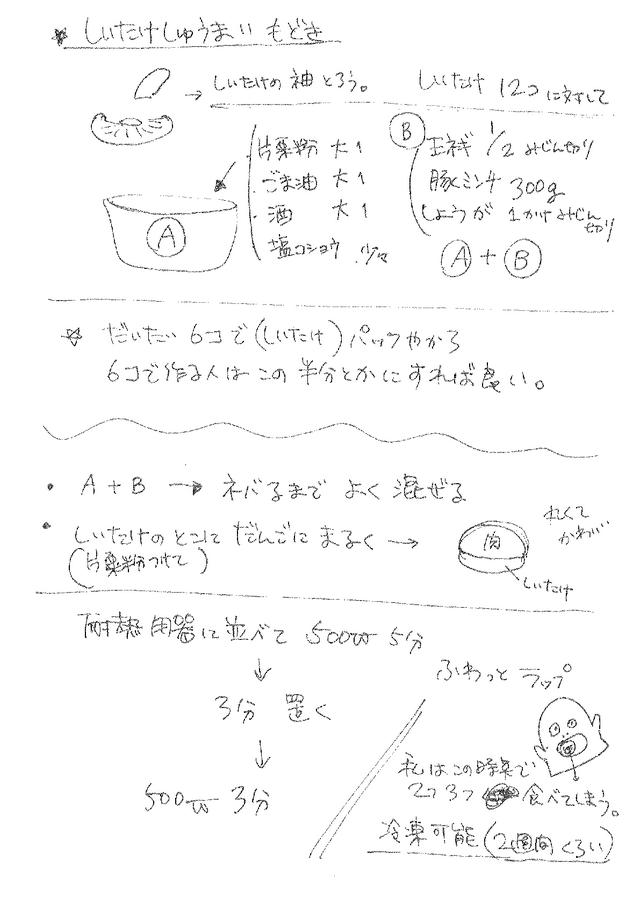 ★ しいたけしゅうまい もどき
→ しいたけの神とろう。
しいたけ 12コに対して
A
・片栗粉 大1
・ごま油 大1
・酒 大1
塩コショウ 少々
B
玉ネギ 1/2 みじん切り
豚ミンチ 300g
しょうが 1かけみじん切り
A + B
☆ だいたい 6コで(しいたけ)パックやから
6コで作る人はこの半分とかにすれば良い。
・ A + B → ネバるまで よく 混ぜる
・ しいたけのとこにだんごにまるく →
(片栗粉つけて)
肉
しいたけ
かわいい
耐熱用器に並べて 500w 5分
↓
3分 置く
↓
500w 3分
ふわっと ラップ
私はこの時点で
2つ3つ 食べてしまう。
冷凍可能(2週間くらい)